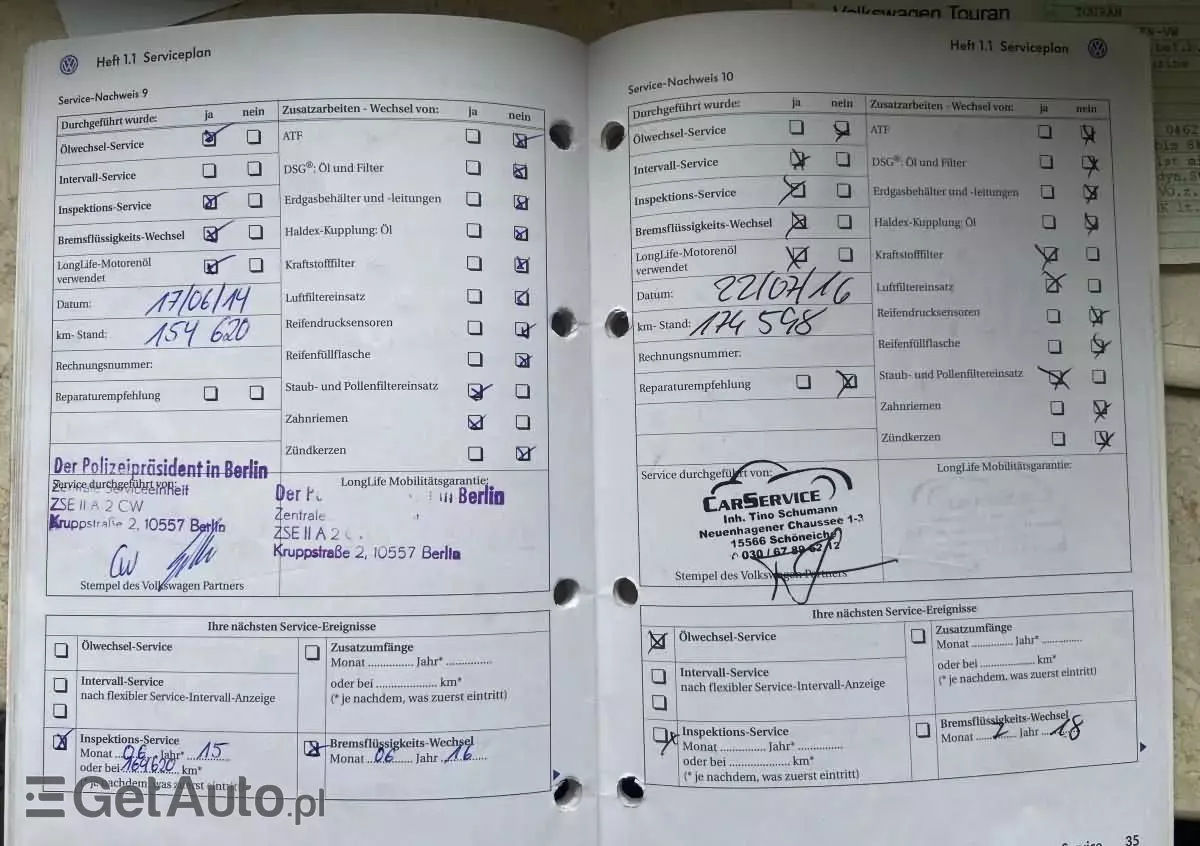 Volkswagen Touran
TOURAN
Heft 1.1 Serviceplan
Service-Nachweis 9
Durchgeführt wurde: ja nein
Ölwechsel-Service
Intervall-Service
Inspektions-Service
Bremsflüssigkeits-Wechsel
LongLife-Motorenöl
verwendet
Datum: 17/06/14
km- Stand: 154 620
Rechnungsnummer:
Reparaturempfehlung
Zusatzarbeiten - Wechsel von: ja nein
ATF
DSG®: Öl und Filter
Erdgasbehälter und -leitungen
Haldex-Kupplung: Öl
Kraftstofffilter
Luftfiltereinsatz
Reifendrucksensoren
Reifenfüllflasche
Staub- und Pollenfiltereinsatz
Zahnriemen
Zündkerzen
Der Polizeipräsident in Berlin
Service durchgeführt von:
Zentrale Serviceeinheit
ZSE II A 2 CW
Kruppstraße 2, 10557 Berlin
Stempel des Volkswagen Partners
LongLife Mobilitätsgarantie:
Der Berlin
Zentrale
ZSE II A 2
Kruppstraße 2, 10557 Berlin
Ihre nächsten Service-Ereignisse
Ölwechsel-Service
Intervall-Service
nach flexibler Service-Intervall-Anzeige
Inspektions-Service
Monat 06 Jahr* 15
oder bei 164620 km*
(* je nachdem, was zuerst eintritt)
Zusatzumfänge
Monat .............. Jahr* ..............
oder bei .................... km*
(* je nachdem, was zuerst eintritt)
Bremsflüssigkeits-Wechsel
Monat 06 Jahr 16
Heft 1.1 Serviceplan
Service-Nachweis 10
Durchgeführt wurde: ja nein
Ölwechsel-Service
Intervall-Service
Inspektions-Service
Bremsflüssigkeits-Wechsel
LongLife-Motorenöl
verwendet
Datum: 22/07/16
km- Stand: 174 598
Rechnungsnummer:
Reparaturempfehlung
Zusatzarbeiten - Wechsel von: ja nein
ATF
DSG®: Öl und Filter
Erdgasbehälter und -leitungen
Haldex-Kupplung: Öl
Kraftstofffilter
Luftfiltereinsatz
Reifendrucksensoren
Reifenfüllflasche
Staub- und Pollenfiltereinsatz
Zahnriemen
Zündkerzen
Service durchgeführt von:
CARSERVICE
Inh. Tino Schumann
Neuenhagener Chaussee 1-3
15566 Schöneiche
030 / 67 89 62 12
Stempel des Volkswagen Partners
LongLife Mobilitätsgarantie:
Ihre nächsten Service-Ereignisse
Ölwechsel-Service
Intervall-Service
nach flexibler Service-Intervall-Anzeige
Inspektions-Service
Monat .............. Jahr* ..............
oder bei .................... km*
(* je nachdem, was zuerst eintritt)
Zusatzumfänge
Monat .............. Jahr* ..............
oder bei .................... km*
(* je nachdem, was zuerst eintritt)
Bremsflüssigkeits-Wechsel
Monat 2 Jahr 18
35
GetAuto.pl